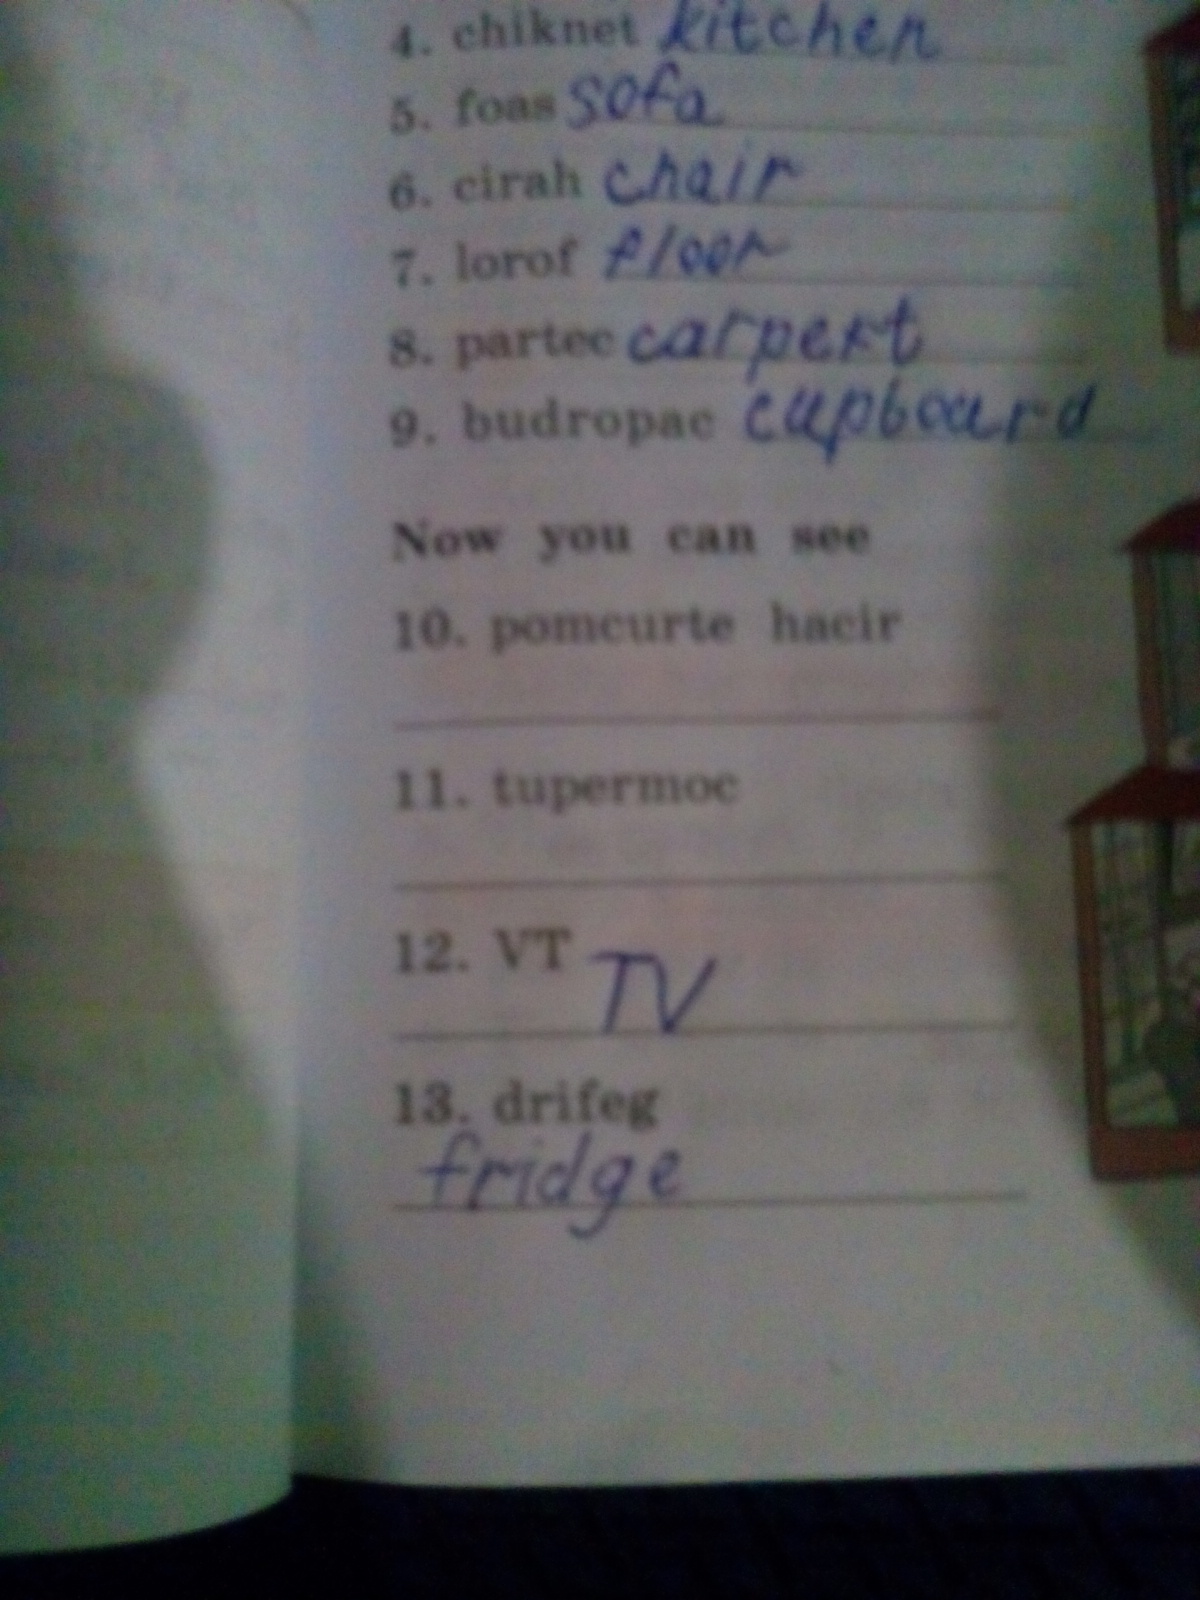 4. chiknet kitchen
5. foas sofa
6. cirah chair
7. lorof floor
8. partec carpert
9. budropac cupboard
Now you can see
10. pomcurte hacir
11. tupermoc
12. VT TV
13. drifeg
fridge